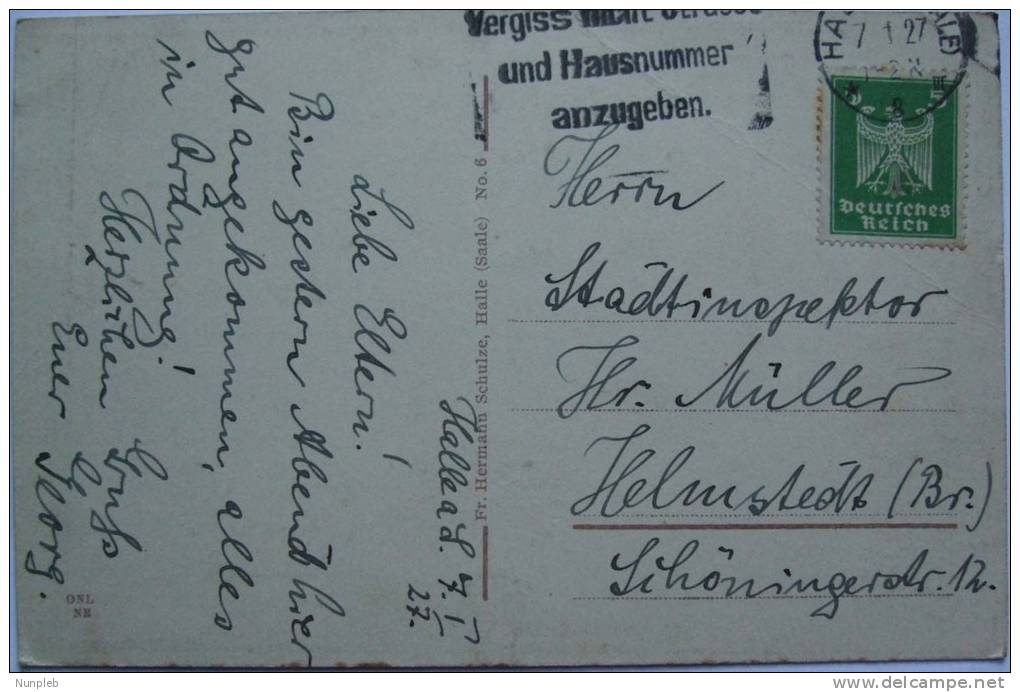 Halle a S. 7. I
27.
Liebe Eltern!
Bin gestern Abend hier
gut angekommen, alles
in Ordnung!
Herzlichen Gruß
Euer
ONL
NB
Fr. Hermann Schulze, Halle (Saale) No. 6
Vergiss nicht Strasse
und Hausnummer
anzugeben.
7 1 27
8
5 5
Deutsches
Reich
Herrn
Stadtinspektor
Hr. Müller
Helmstedt (Br.)
Schöningerstr. 12.
Nunpleb
delcampe.net